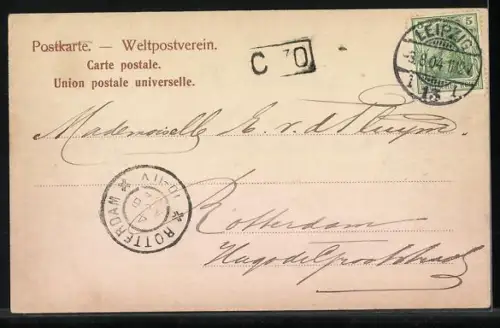 Postkarte. — Weltpostverein.
Carte postale.
Union postale universelle.
LEIPZIG
5
13
Mademoiselle E. v. d. Kluym.
ROTTERDAM
Rotterdam
Hugo de Grootstraat